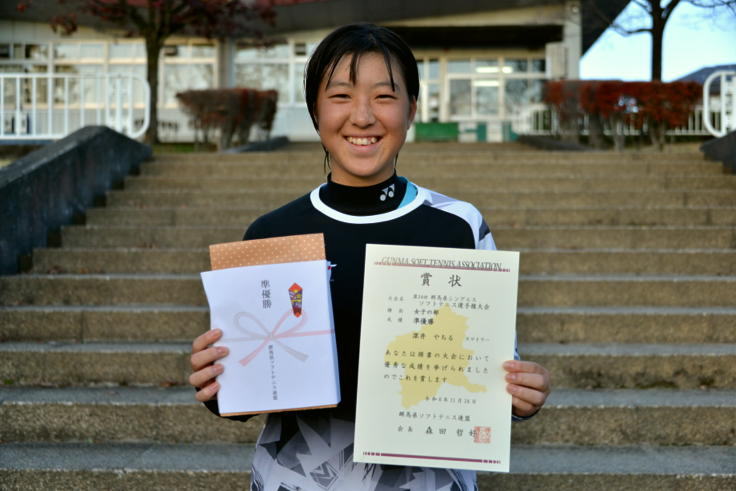 準優勝
群馬県ソフトテニス連盟
GUNMA SOFT TENNIS ASSOCIATION
賞状
大会名 第14回 群馬県シングルス
ソフトテニス選手権大会
種別 女子の部
成績 準優勝
深井 やちる
あなたは頭書の大会において
優秀な成績を挙げられました
のでこれを賞します
令和6年11月24日
群馬県ソフトテニス連盟
会長 森田 哲